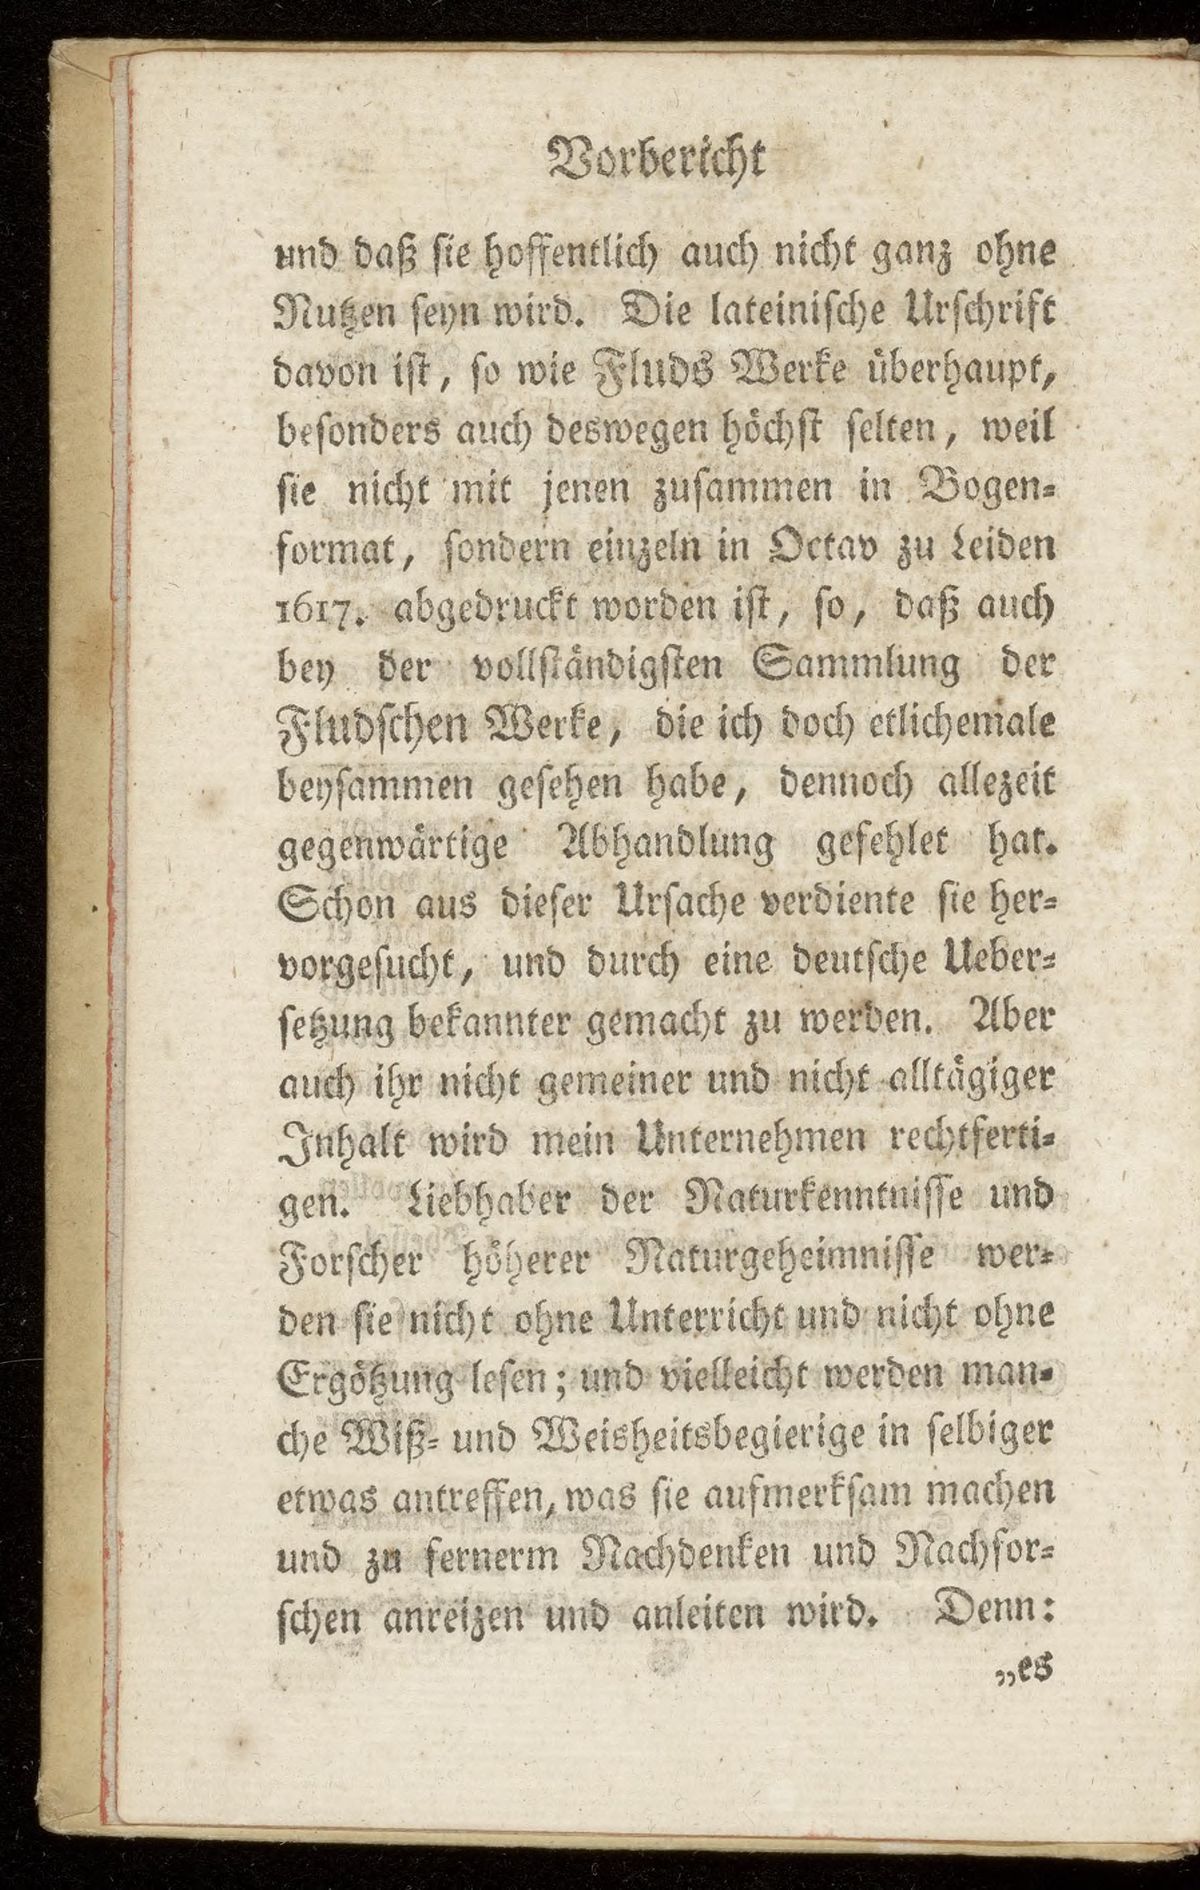 Vorbericht
und daß sie hoffentlich auch nicht ganz ohne
Nutzen seyn wird. Die lateinische Urschrift
davon ist, so wie Fluds Werke überhaupt,
besonders auch deswegen höchst selten, weil
sie nicht mit jenen zusammen in Bogen-
format, sondern einzeln in Octav zu Leiden
1617. abgedruckt worden ist, so, daß auch
bey der vollständigsten Sammlung der
Fludschen Werke, die ich doch etlichemale
beysammen gesehen habe, dennoch allezeit
gegenwärtige Abhandlung gefehlet hat.
Schon aus dieser Ursache verdiente sie her-
vorgesucht, und durch eine deutsche Ueber-
setzung bekannter gemacht zu werden. Aber
auch ihr nicht gemeiner und nicht alltägiger
Inhalt wird mein Unternehmen rechtferti-
gen. Liebhaber der Naturkenntnisse und
Forscher höherer Naturgeheimnisse wer-
den sie nicht ohne Unterricht und nicht ohne
Ergötzung lesen; und vielleicht werden man-
che Wiß- und Weisheitsbegierige in selbiger
etwas antreffen, was sie aufmerksam machen
und zu fernerm Nachdenken und Nachfor-
schen anreizen und anleiten wird. Denn:
„es